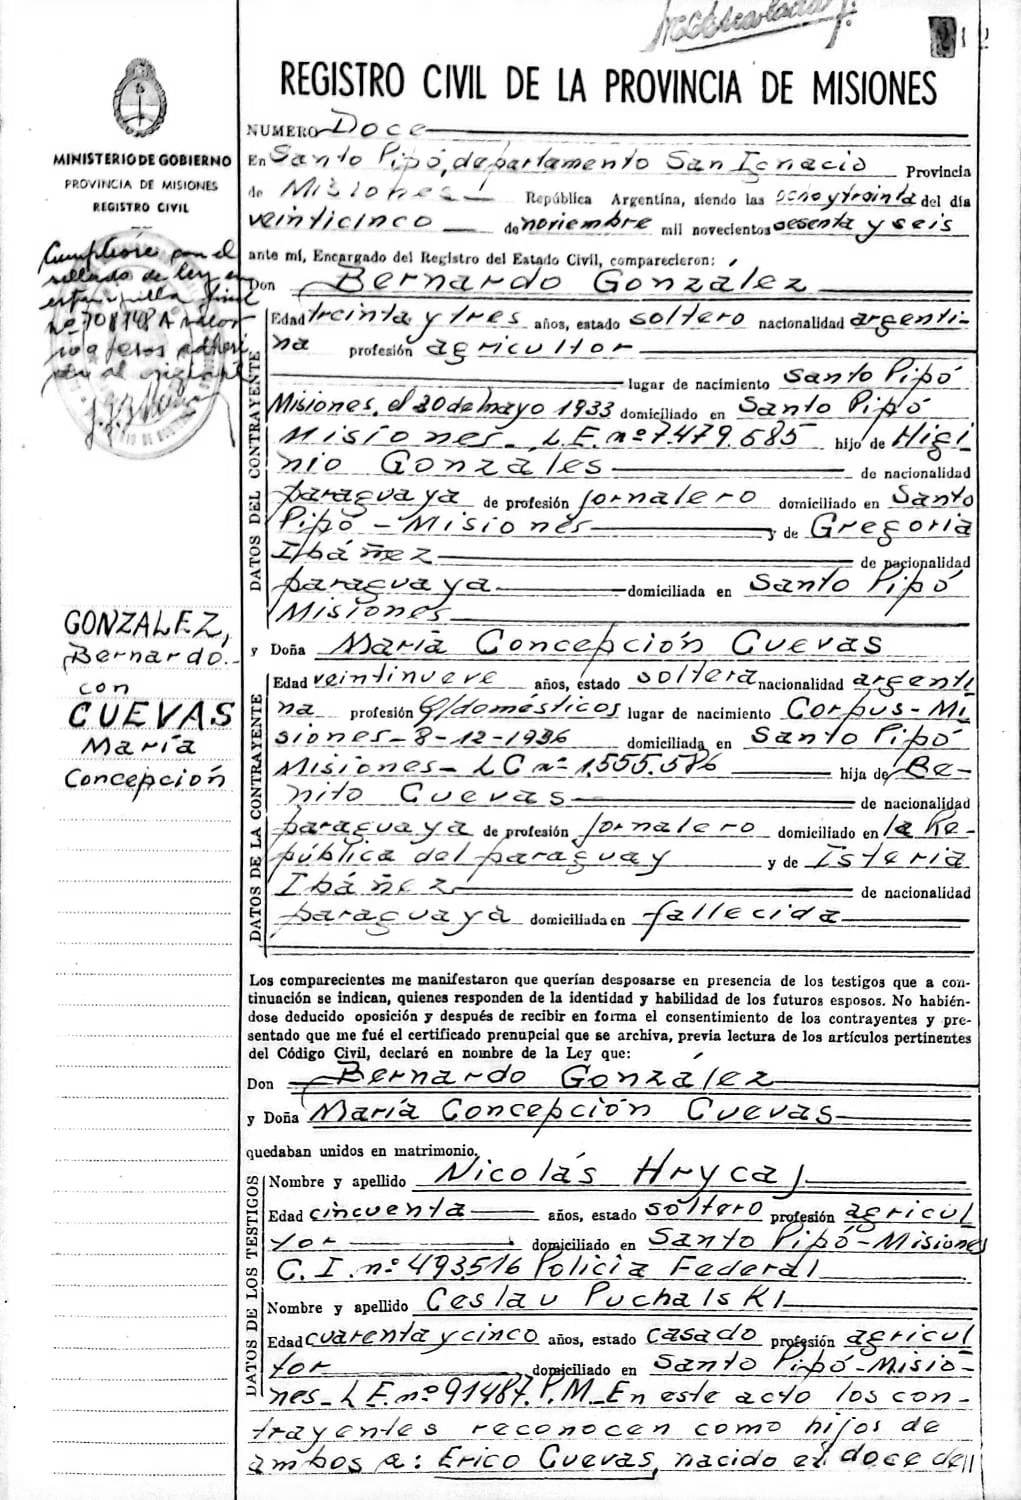 REGISTRO CIVIL DE LA PROVINCIA DE MISIONES
MINISTERIO DE GOBIERNO
PROVINCIA DE MISIONES
REGISTRO CIVIL
Cumpliose con el
sellado de ley en
estampilla
nº 708148 A valor
pesos adheri
al original
GONZALEZ,
Bernardo.
con
CUEVAS
María
Concepción
NUMERO Doce
En Santo Pipó, departamento San Ignacio Provincia
de Misiones República Argentina, siendo las ocho y treinta del día
veinticinco de noviembre mil novecientos sesenta y seis
ante mí, Encargado del Registro del Estado Civil, comparecieron:
Don Bernardo González
DATOS DEL CONTRAYENTE
Edad treinta y tres años, estado soltero nacionalidad argenti-
na profesión agricultor
lugar de nacimiento Santo Pipó
Misiones, el 20 de mayo 1933 domiciliado en Santo Pipó
Misiones- L.E. nº 7.479.685 hijo de Higi
nio Gonzáles de nacionalidad
paraguaya de profesión jornalero domiciliado en Santo
Pipó - Misiones y de Gregoria
Ibáñez de nacionalidad
paraguaya domiciliada en Santo Pipó
Misiones
y Doña María Concepción Cuevas
DATOS DE LA CONTRAYENTE
Edad veintinueve años, estado soltera nacionalidad argenti
na profesión Q/domésticos lugar de nacimiento Corpus-Mi
siones-8-12-1936 domiciliada en Santo Pipó
Misiones- LC nº 1.555.586 hija de Be-
nito Cuevas de nacionalidad
paraguaya de profesión jornalero domiciliado en la Re-
pública del paraguay y de Isteria
Ibáñez de nacionalidad
paraguaya domiciliada en fallecida
Los comparecientes me manifestaron que querían desposarse en presencia de los testigos que a con-
tinuación se indican, quienes responden de la identidad y habilidad de los futuros esposos. No habién-
dose deducido oposición y después de recibir en forma el consentimiento de los contrayentes y pre-
sentado que me fué el certificado prenupcial que se archiva, previa lectura de los artículos pertinentes
del Código Civil, declaré en nombre de la Ley que:
Don Bernardo González
y Doña María Concepción Cuevas
quedaban unidos en matrimonio.
DATOS DE LOS TESTIGOS
Nombre y apellido Nicolás Hrycaj
Edad cincuenta años, estado soltero profesión agricul
tor domiciliado en Santo Pipó-Misiones
C.I. nº 493516 Policía Federal
Nombre y apellido Ceslau Puchalski
Edad cuarenta y cinco años, estado casado profesión agricul
tor domiciliado en Santo Pipó-Misio-
nes- L E. nº 91487. P.M. En este acto los con-
trayentes reconocen como hijos de
ambos a: Erico Cuevas, nacido el doce del